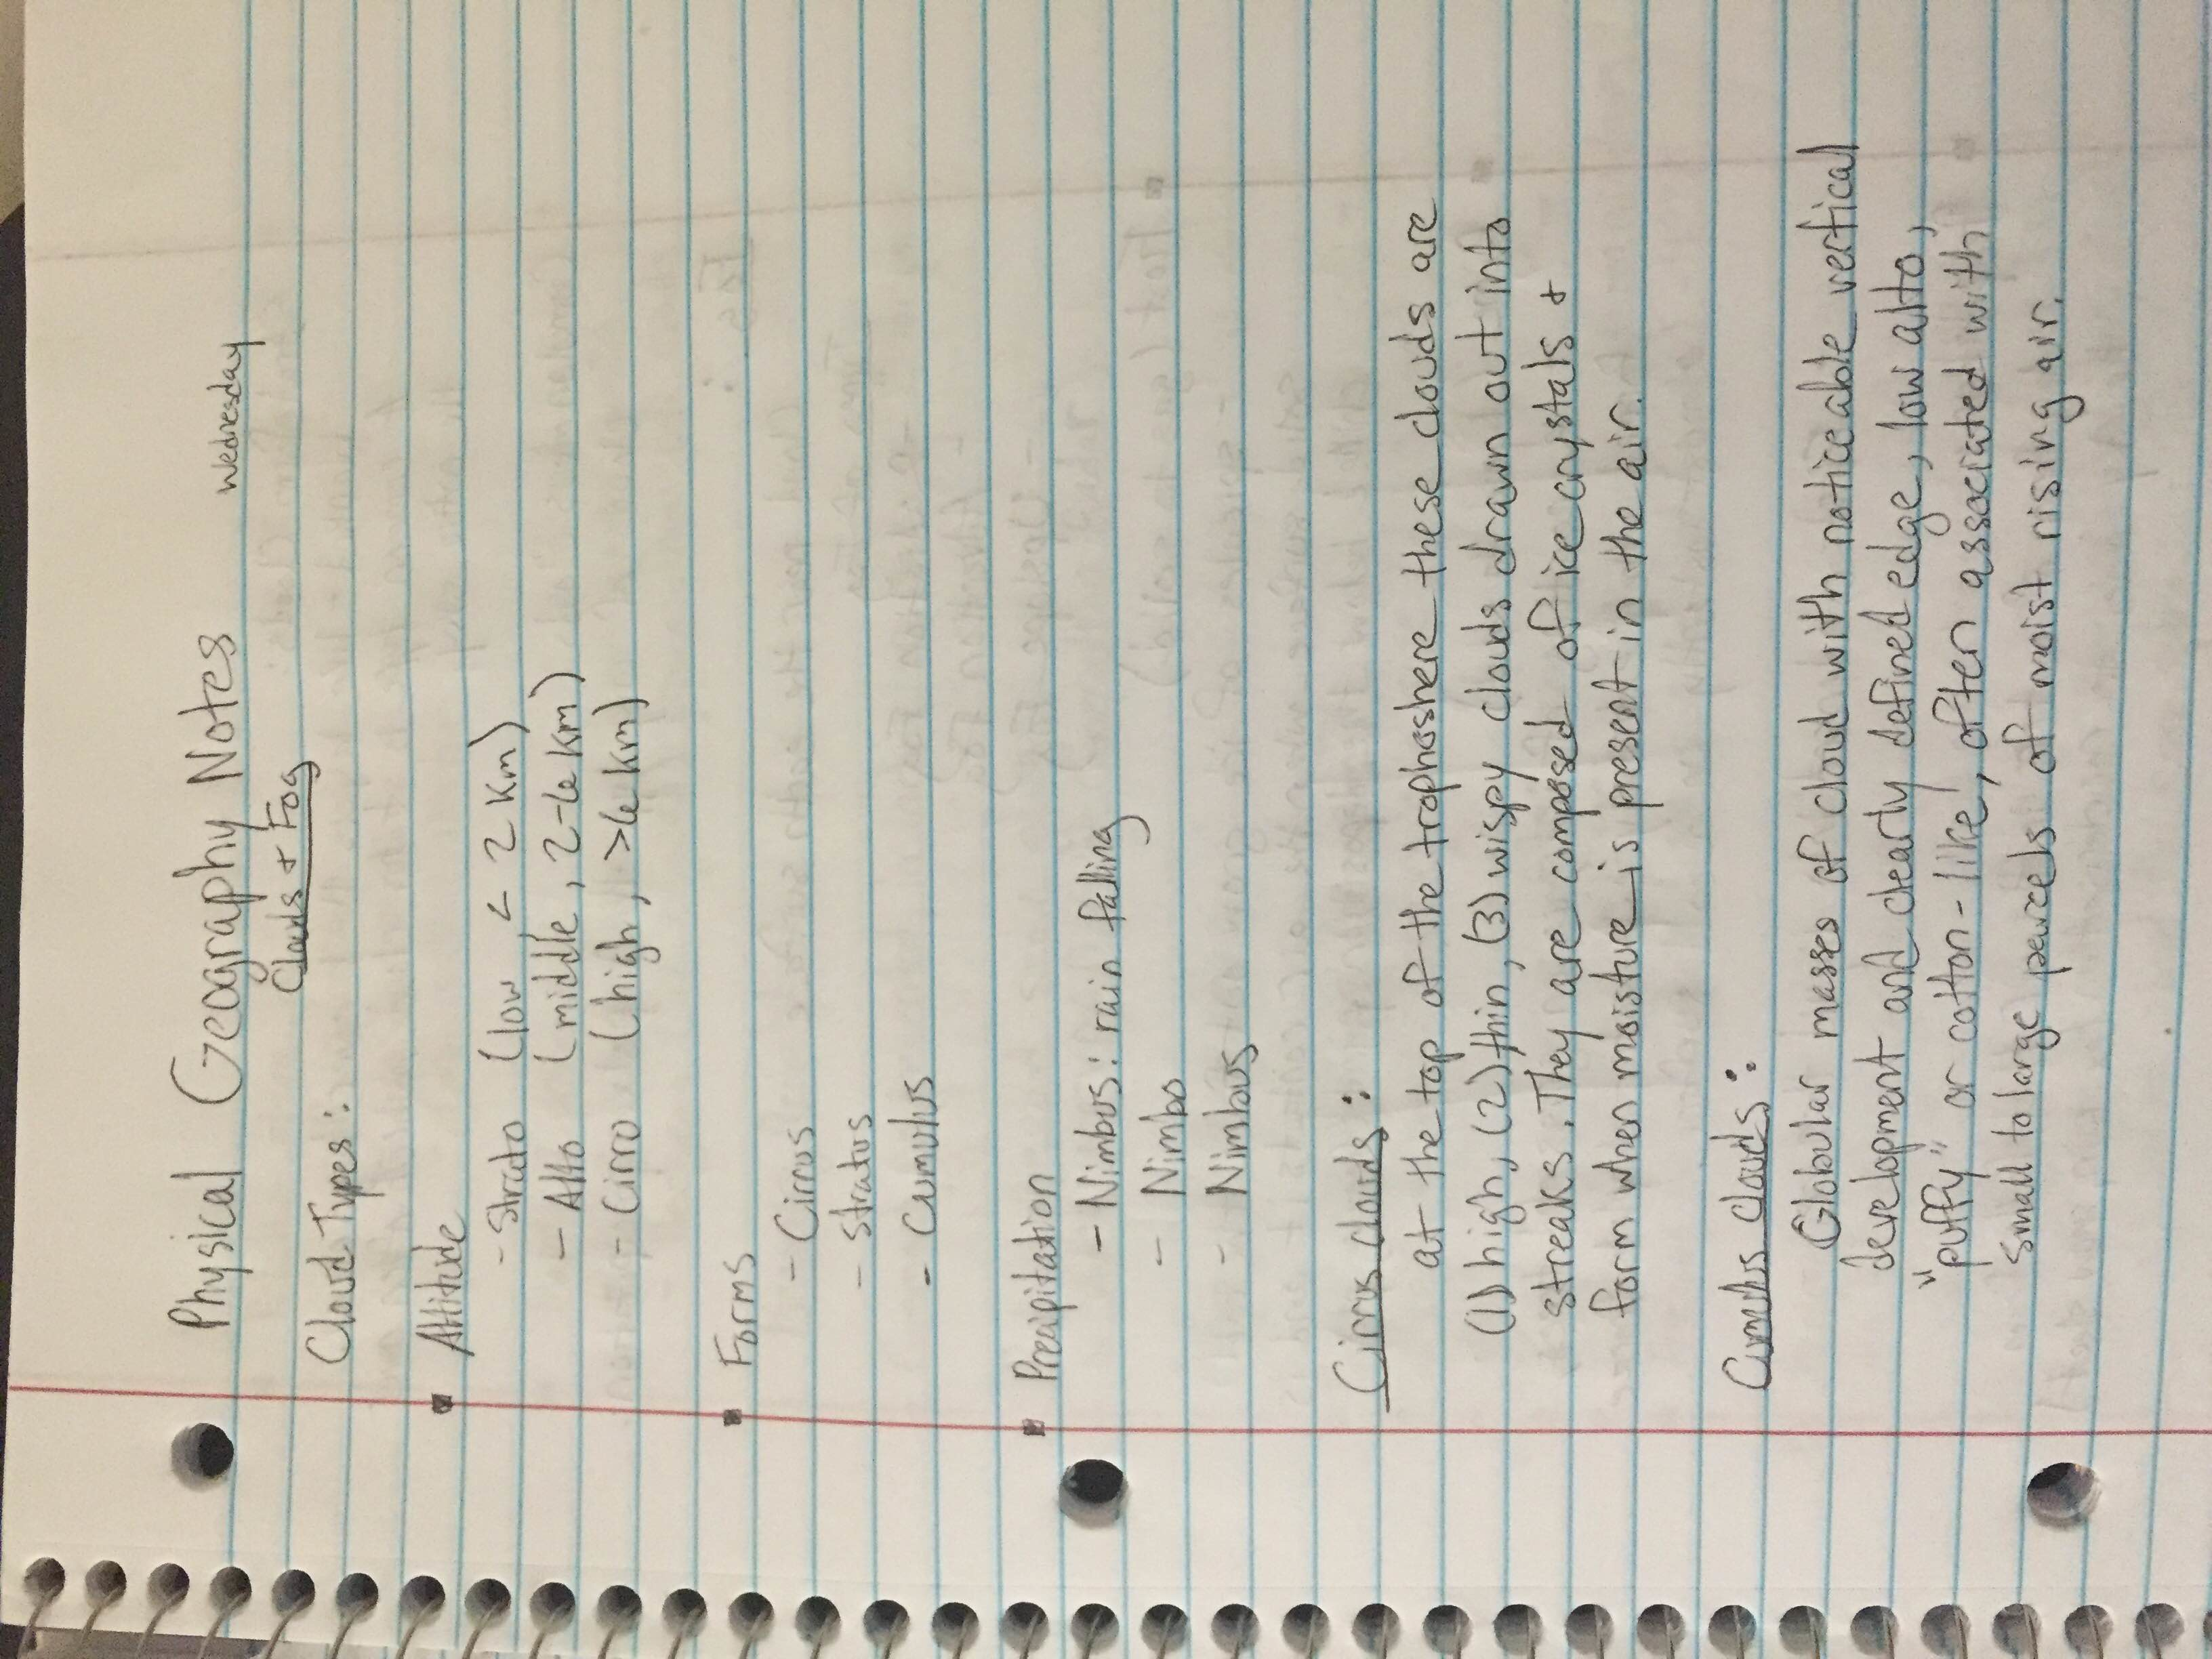 Physical Geography Notes Wednesday
Clouds + Fog
Cloud Types:
Altitude
- Strato (low < 2 km)
- Alto (middle, 2-6 km)
- Cirro (high, >6 km)
Forms
- Cirrus
- Stratus
- Cumulus
Precipitation
- Nimbus: rain falling
- Nimbo
- Nimbus
Cirrus clouds:
at the top of the trophoshere these clouds are
(1) high, (2) thin, (3) wispy clouds drawn out into
streaks. They are composed of ice crystals +
form when moisture is present in the air.
Cumulus clouds:
Globular masses of cloud with noticeable vertical
development and clearly defined edge, low alto,
"puffy" or cotton-like, often associated with
small to large parcels of moist rising air.